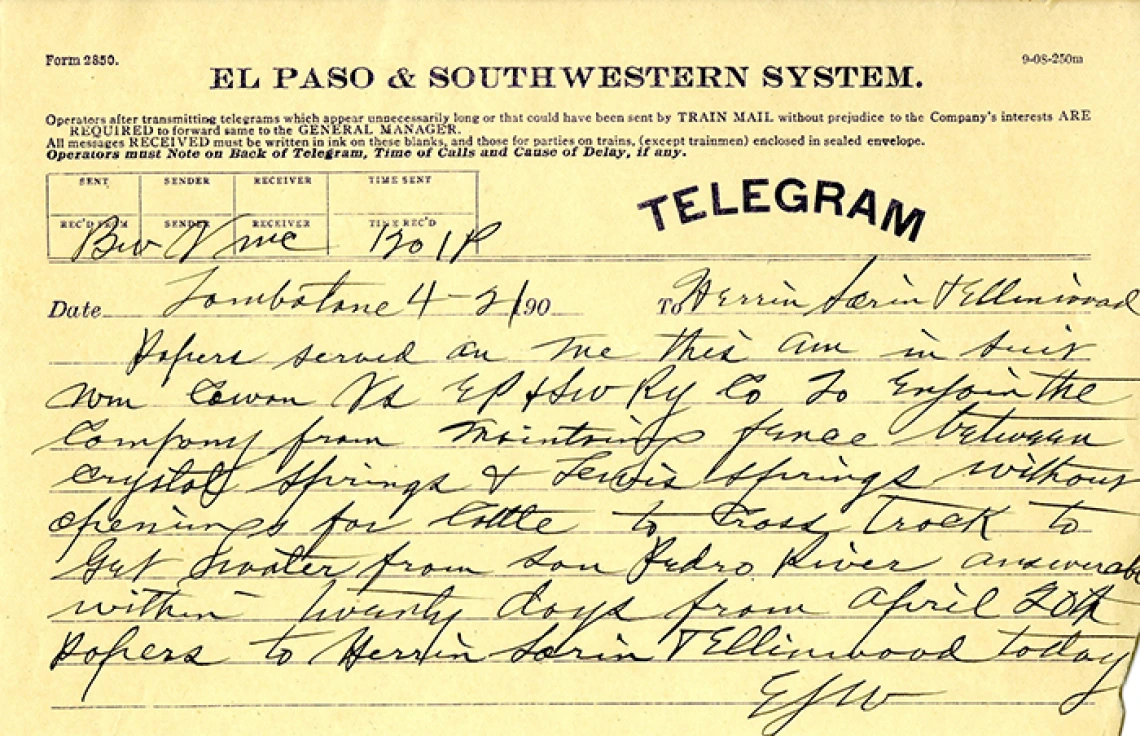 Form 2850.
9-08-250m
EL PASO & SOUTHWESTERN SYSTEM.
Operators after transmitting telegrams which appear unnecessarily long or that could have been sent by TRAIN MAIL without prejudice to the Company's interests ARE
REQUIRED to forward same to the GENERAL MANAGER.
All messages RECEIVED must be written in ink on these blanks, and those for parties on trains, (except trainmen) enclosed in sealed envelope.
Operators must Note on Back of Telegram, Time of Calls and Cause of Delay, if any.
SENT SENDER RECEIVER TIME SENT
REC'D FROM SENDER RECEIVER TIME REC'D
TELEGRAM
Date Tombstone 4-21 190 To Herrin Sorin & Ellinwood
Papers served on me this am in suit
Wm Cowan Vs EP & SW Ry Co To Enjoin the
Company from maintaing fence between
crystal Springs & Lewis Springs without
openings for Cattle to Cross Track to
Get water from San Pedro River
within twenty days from April 20th
Papers to Herrin Sorin & Ellinwood today